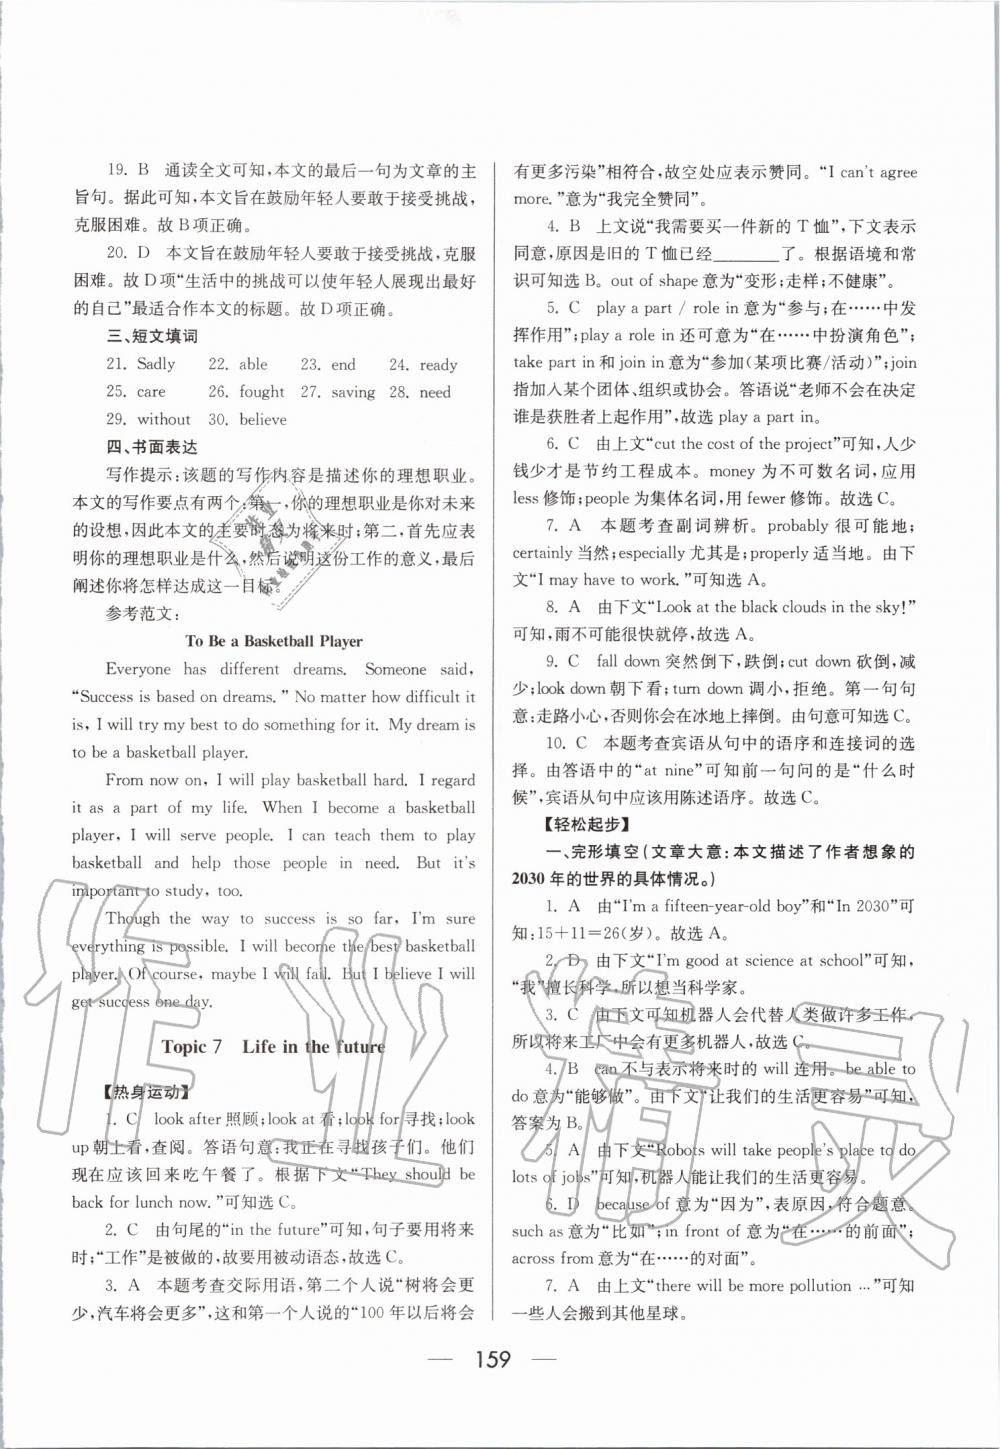 19. B 通读全文可知,本文的最后一句为文章的主
旨句。据此可知,本文旨在鼓励年轻人要敢于接受挑战,
克服困难。故 B 项正确。
20. D 本文旨在鼓励年轻人要敢于接受挑战,克服
困难。故 D 项“生活中的挑战可以使年轻人展现出最好
的自己”最适合作本文的标题。故 D 项正确。
三、短文填词
21. Sadly 22. able 23. end 24. ready
25. care 26. fought 27. saving 28. need
29. without 30. believe
四、书面表达
写作提示:该题的写作内容是描述你的理想职业。
本文的写作要点有两个:第一,你的理想职业是你对未来
的设想,因此本文的主要时态为将来时;第二,首先应表
明你的理想职业是什么,然后说明这份工作的意义,最后
阐述你将怎样达成这一目标。
参考范文:
To Be a Basketball Player
Everyone has different dreams. Someone said,
“Success is based on dreams.” No matter how difficult it
is, I will try my best to do something for it. My dream is
to be a basketball player.
From now on, I will play basketball hard. I regard
it as a part of my life. When I become a basketball
player, I will serve people. I can teach them to play
basketball and help those people in need. But it's
important to study, too.
Though the way to success is so far, I'm sure
everything is possible. I will become the best basketball
player. Of course, maybe I will fail. But I believe I will
get success one day.
Topic 7 Life in the future
【热身运动】
1. C look after 照顾;look at 看;look for 寻找;look
up 朝上看,查阅。答语句意:我正在寻找孩子们。他们
现在应该回来吃午餐了。根据下文“They should be
back for lunch now.”可知选 C。
2. C 由句尾的“in the future”可知,句子要用将来
时;“工作”是被做的,故要用被动语态,故选 C。
3. A 本题考查交际用语,第二个人说“树将会更
少,汽车将会更多”,这和第一个人说的“100 年以后将会
有更多污染”相符合,故空处应表示赞同。“I can't agree
more.”意为“我完全赞同”。
4. B 上文说“我需要买一件新的 T 恤”,下文表示
同意,原因是旧的 T 恤已经________了。根据语境和常
识可知选 B。out of shape 意为“变形;走样;不健康”。
5. C play a part / role in 意为“参与;在……中发
挥作用”;play a role in 还可意为“在……中扮演角色”;
take part in 和 join in 意为“参加(某项比赛/活动)”;join
指加入某个团体、组织或协会。答语说“老师不会在决定
谁是获胜者上起作用”,故选 play a part in。
6. C 由上文“cut the cost of the project”可知,人少
钱少才是节约工程成本。money 为不可数名词,应用
less 修饰;people 为集体名词,用 fewer 修饰。故选 C。
7. A 本题考查副词辨析。probably 很可能地;
certainly 当然;especially 尤其是;properly 适当地。由下
文“I may have to work.”可知选 A。
8. A 由下文“Look at the black clouds in the sky!”
可知,雨不可能很快就停,故选 A。
9. C fall down 突然倒下,跌倒;cut down 砍倒,减
少;look down 朝下看;turn down 调小,拒绝。第一句句
意:走路小心,否则你会在冰地上摔倒。由句意可知选 C。
10. C 本题考查宾语从句中的语序和连接词的选
择。由答语中的“at nine”可知前一句问的是“什么时
候”,宾语从句中应该用陈述语序。故选 C。
【轻松起步】
一、完形填空(文章大意:本文描述了作者想象的
2030 年的世界的具体情况。)
1. A 由“I'm a fifteen-year-old boy”和“In 2030”可
知:15+11=26(岁)。故选 A。
2. D 由下文“I'm good at science at school”可知,
“我”擅长科学,所以想当科学家。
3. C 由下文可知机器人会代替人类做许多工作,
所以将来工厂中会有更多机器人,故选 C。
4. B can 不与表示将来时的 will 连用。be able to
do 意为“能够做”。由下文“让我们的生活更容易”可知,
答案为 B。
5. A 由下文“Robots will take people's place to do
lots of jobs”可知,机器人能让我们的生活更容易。
6. D because of 意为“因为”,表原因,符合题意。
such as 意为“比如”;in front of 意为“在……的前面”;
across from 意为“在……的对面”。
7. A 由上文“there will be more pollution …”可知
一些人会搬到其他星球。
— 159 —
作业精灵